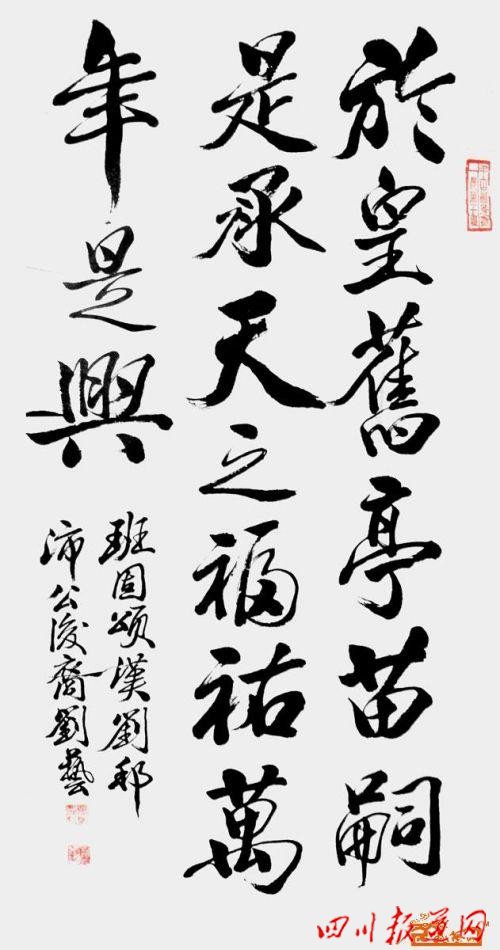 於皇舊亭苗嗣
是承天之福祐萬
年是興
班固頌漢劉邦
沛公後裔劉藝
四川报道网